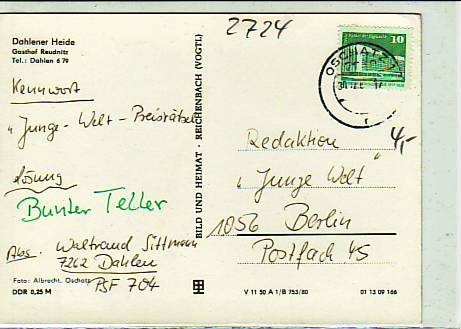 2724
Dahlener Heide
Gasthof Reudnitz
Tel.: Dahlen 6 79
Kennwort
„Junge-Welt-Preisrätsel
Lösung
Bunter Teller
Abs. Waltraud Sittmann
7262 Dahlen
PSF 704
Foto: Albrecht, Oschatz
DDR 0,25 M
BILD UND HEIMAT · REICHENBACH (VOGTL)
V 11 50 A 1/B 753/80
01 13 09 166
OSCHATZ
10
4,-
Redaktion
„Junge Welt"
1056 Berlin
Postfach 45